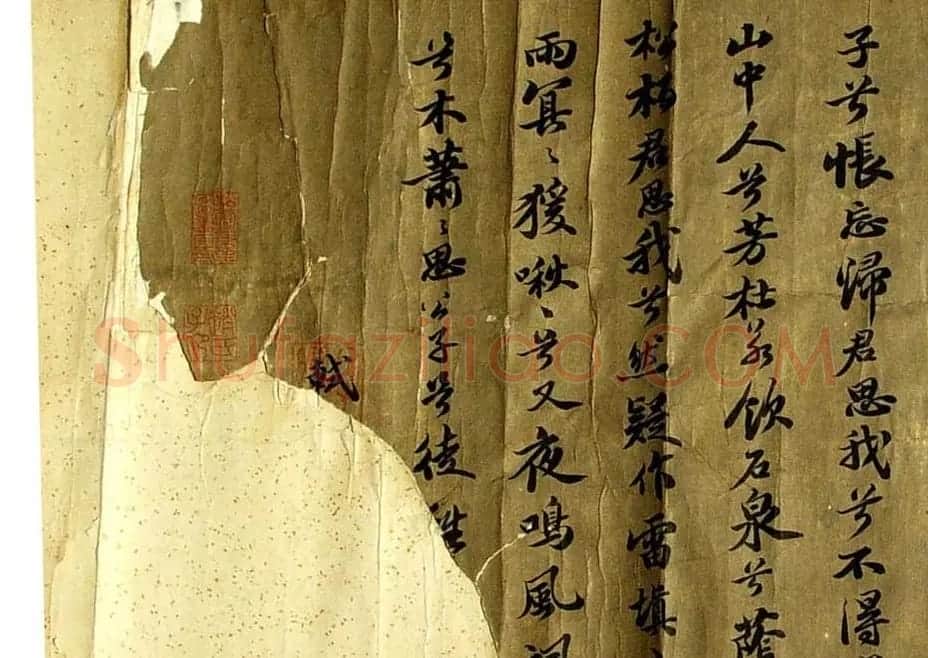 子兮悵忘歸君思我兮不得
山中人兮芳杜若飲石泉兮蔭
松柏君思我兮然疑作雷填
雨冥〻猨啾〻兮又夜鳴風
兮木蕭〻思公子兮徒
軾
Shufaziliao.COM